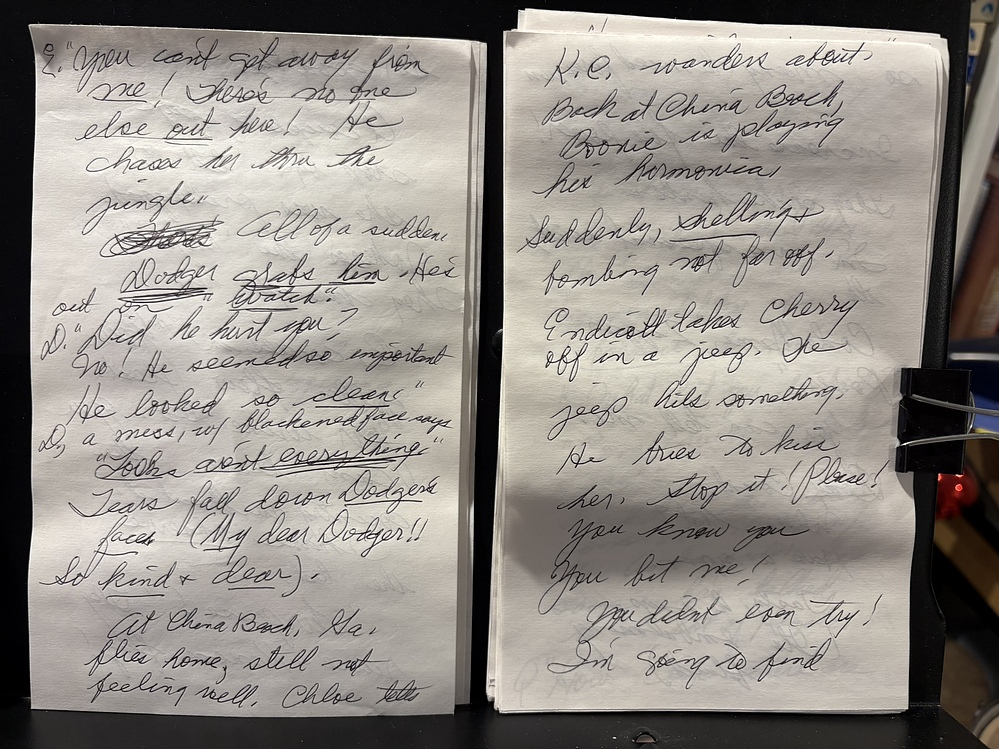 E. "You can't get away from
me! There's no one
else out here! He
chases her thru the
jungle.
All of a sudden
Dodger grabs him. He's
out on "watch".
D. "Did he hurt you?
No! He seemed so important
He looked so clean."
D. a mess, w/ blackened face says
"Looks aren't everything."
Tears fall down Dodger's
face. (My dear Dodger!!
So kind + dear).
At China Beach, Ga.
flies home, still not
feeling well. Chloe tells
K.C. wanders about.
Back at China Beach,
Boonie is playing
his harmonica.
Suddenly, shelling +
bombing not far off.
Endicott takes Cherry
off in a jeep. The
jeep hits something.
He tries to kiss
her. Stop it! Please!
You know you
You bit me!
You didn't even try!
I'm going to find